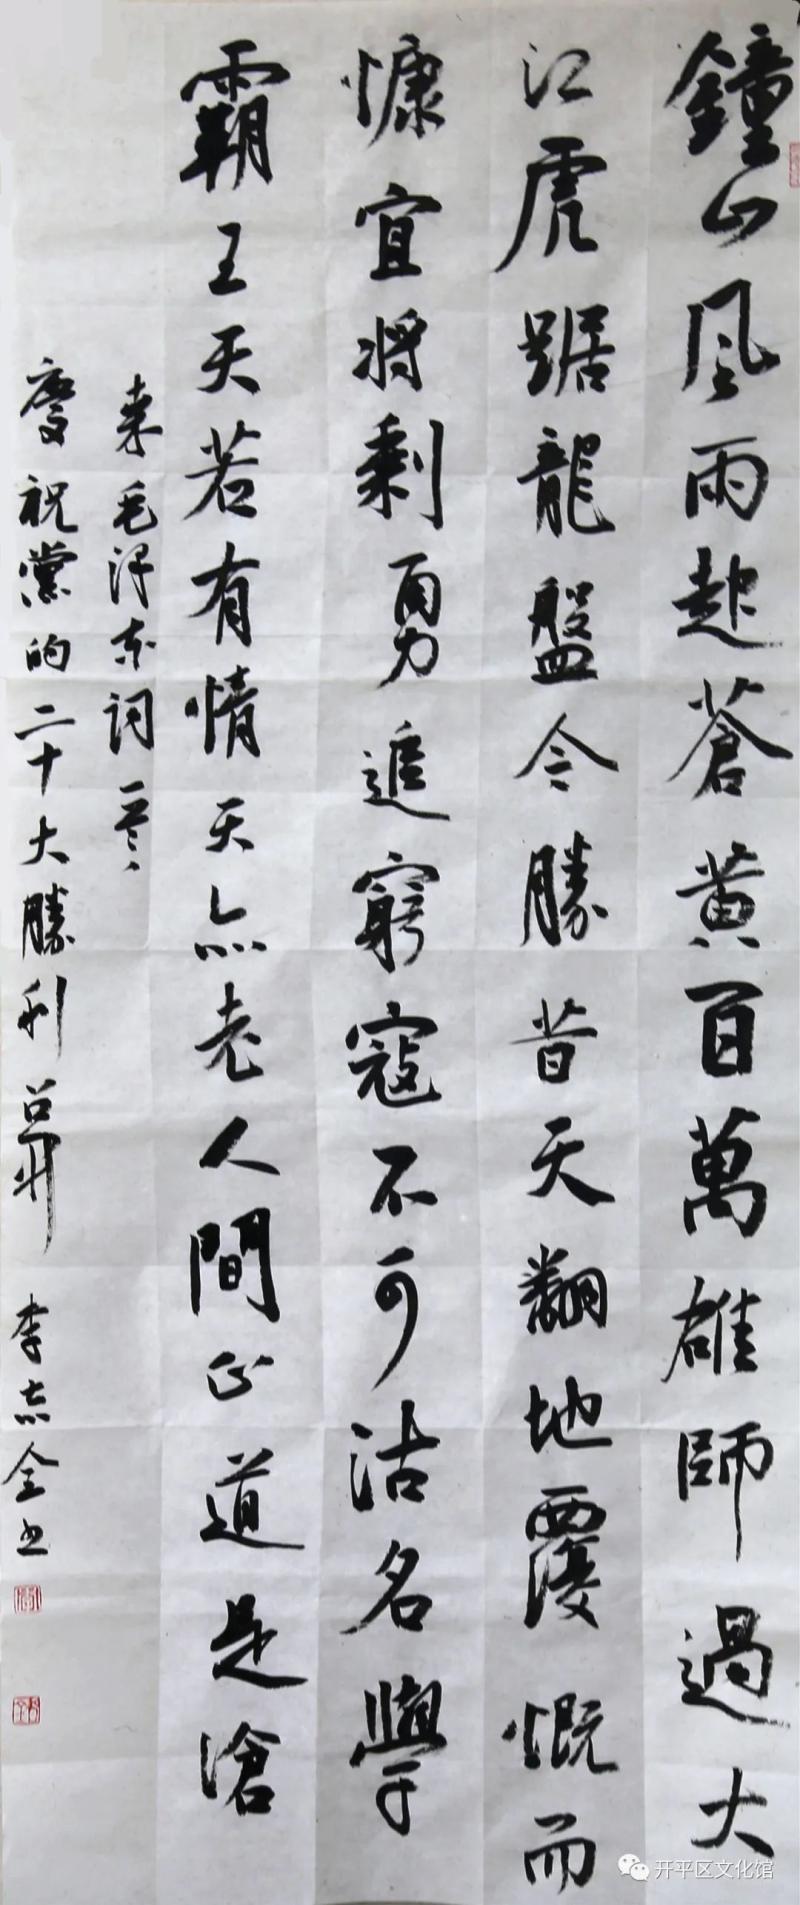 鐘山風雨起蒼黃百萬雄師過大
江虎踞龍盤今勝昔天翻地覆慨而
慷宜將剩勇追窮寇不可沽名學
霸王天若有情天亦老人間正道是滄
桒毛澤东詞一首
慶祝黨的二十大勝利召開 李志全书
开平区文化馆